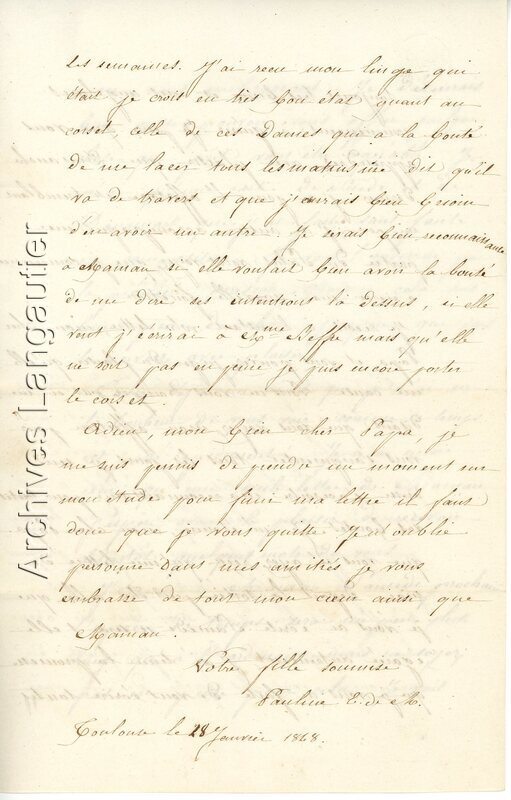 les semaines. J'ai reçu mon linge qui
était je crois en très bon état quant au
corset, celle de ces Dames qui a la bonté
de me lacer tous les matins me dit qu'il
va de travers et que j'aurais bien besoin
d'en avoir un autre. Je serais bien reconnaissante
à Maman si elle voulait bien avoir la bonté
de me dire ses intentions la dessus, si elle
veut j'ecrirai à Mme Reffre mais qu'elle
ne soit pas en peine je puis encore porter
le corset.
Adieu, mon bien cher Papa, je
me suis permis de prendre un moment sur
mon étude pour finir ma lettre il faut
donc que je vous quitte. Je n'oublie
personne dans mes amitiés je vous
embrasse de tout mon cœur ainsi que
Maman.
Votre fille soumise
Pauline E. de M.
Toulouse le 28 Janvier 1868.
Archives Langautier